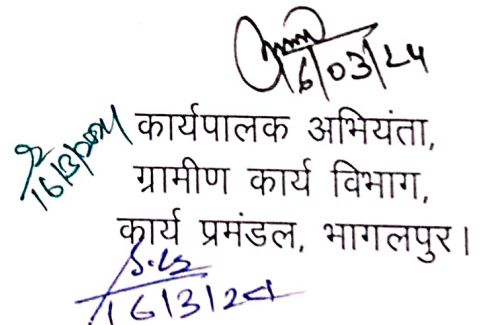 16/03/24
16/3/2024
कार्यपालक अभियंता,
ग्रामीण कार्य विभाग,
कार्य प्रमंडल, भागलपुर।
16/3/24